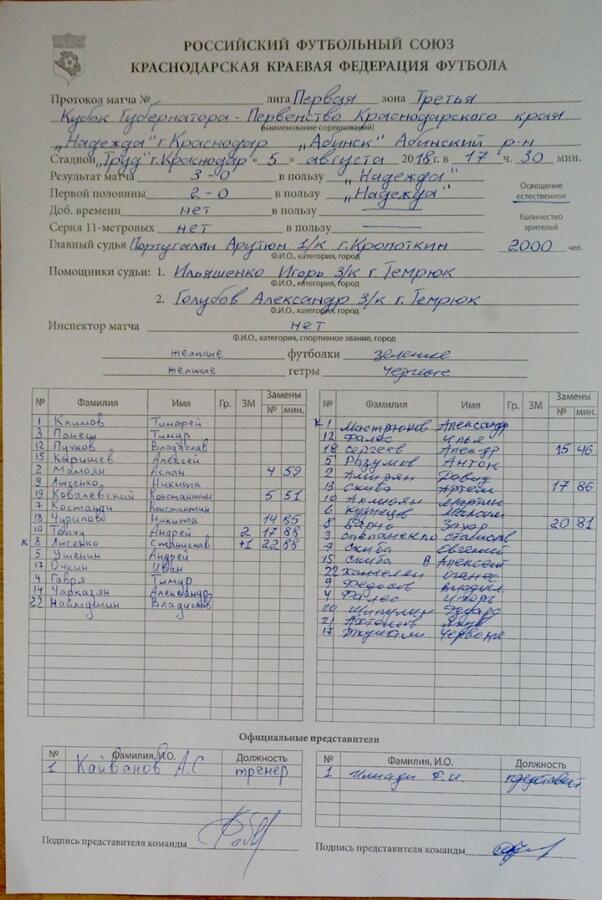 РОССИЙСКИЙ ФУТБОЛЬНЫЙ СОЮЗ
КРАСНОДАРСКАЯ КРАЕВАЯ ФЕДЕРАЦИЯ ФУТБОЛА
Протокол матча № лига Первая зона Третья
Кубок Губернатора - Первенство Краснодарского края
(наименование соревнований)
„Надежда" г. Краснодар „Абинск" Абинский р-н
Стадион „Труд" г. Краснодар « 5 » августа 2018 г. в 17 ч. 30 мин.
Результат матча 3-0 в пользу „Надежда"
Первой половины 2-0 в пользу „Надежда"
Освещение
естественное
Доб. времени нет в пользу
Серия 11-метровых нет в пользу
Количество
зрителей
Главный судья Португалян Арутюн 1/к г. Кропоткин 2000 чел.
Ф.И.О., категория, город
Помощники судьи: 1. Ильяшенко Игорь 3/к г. Темрюк
Ф.И.О., категория, город
2. Голубов Александр 3/к г. Темрюк
Ф.И.О., категория, город
Инспектор матча нет
Ф.И.О., категория, спортивное звание, город
желтые футболки зеленые
желтые гетры черные
№ Фамилия Имя Гр. ЗМ Замены № мин.
1 Климов Тимофей
3 Панеш Тимур
12 Пучков Владислав
15 Кыришев Алексей
2 Мамоян Аслан 4 59
9 Лисенко Никита
19 Ковалевский Константин 5 51
7 Костанди Константин
18 Чурилов Никита 14 85
10 Андрей 2 17 88
к 8 Лисенко Станислав +1 22 88
5 Ушенин Андрей
17 Очкин Иван
4 Гавря Тимур
14 Чарказян Александр
22 Наймушин Владислав
№ Фамилия Имя Гр. ЗМ Замены № мин.
к 1 Мастрюков Александр
12 Фалес Илья
18 Сергеев 15 46
5 Разумов Антон
2 Давид
13 Скиба Артем 17 86
10 Мартин
6 Кузнецов Максим
8 Захар 20 81
3 Степаненко
7 Скиба Евгений
15 Скиба В Алексей
22
9 Федосов
4 Фалес Игорь
20 Шипулин Эдуард
21
17
Официальные представители
№ Фамилия, И.О. Должность
1 Кайванов А.С тренер
№ Фамилия, И.О. Должность
1
Подпись представителя команды
Подпись представителя команды